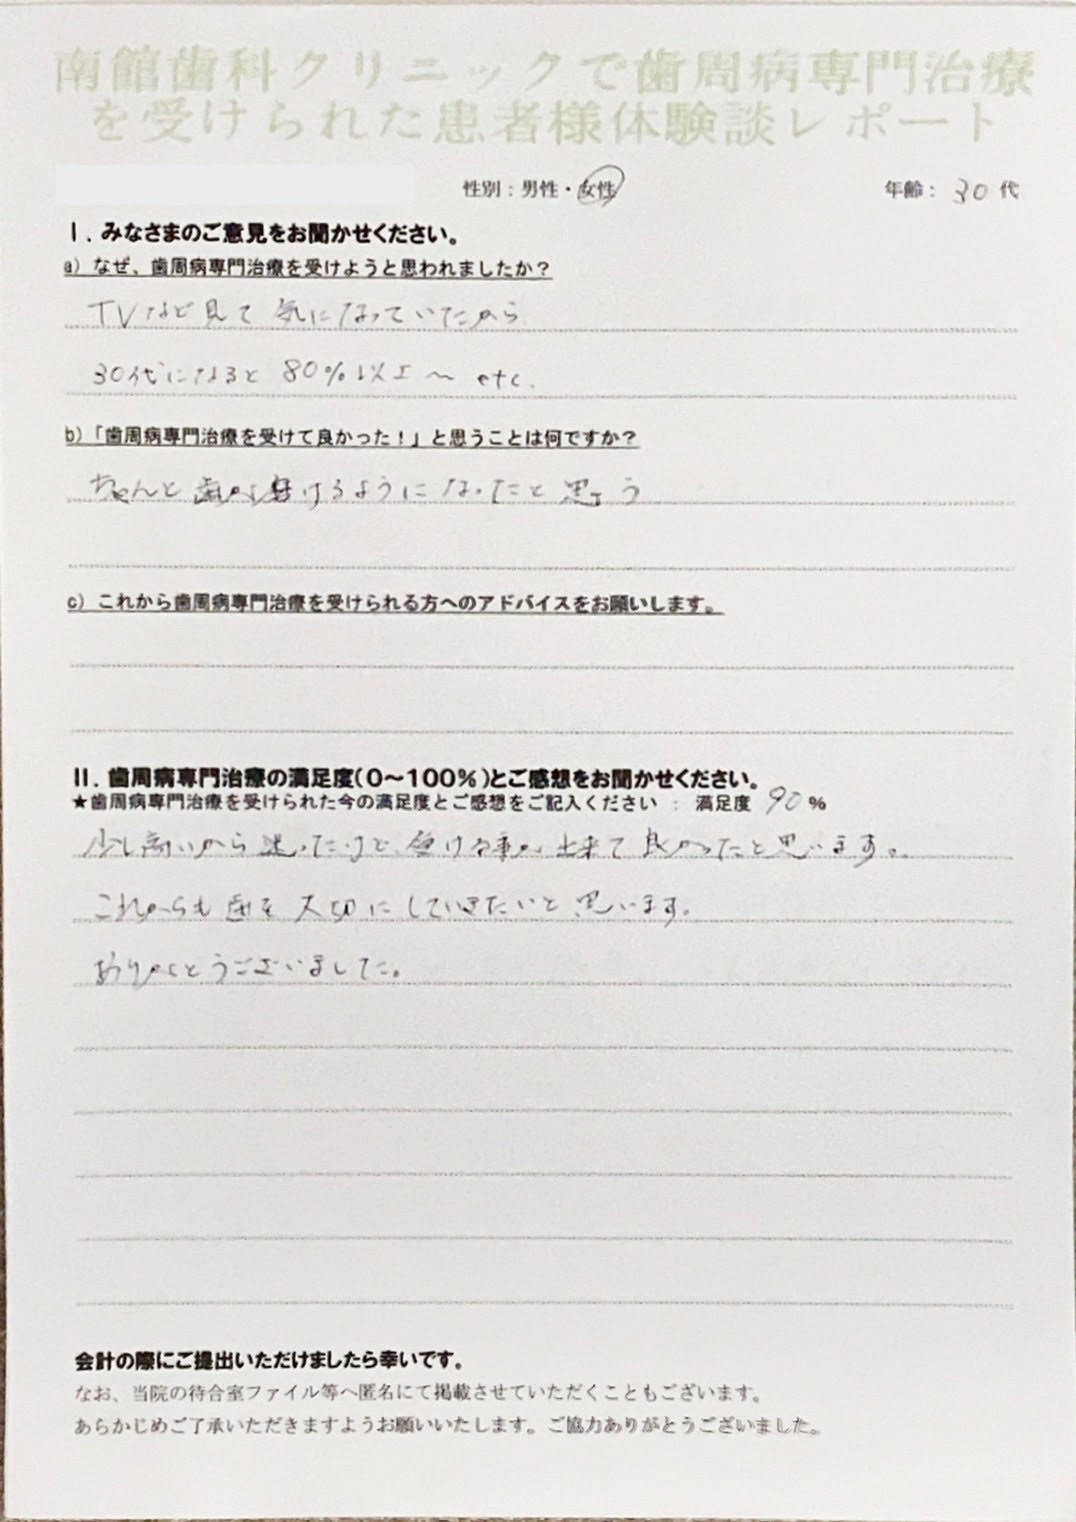 南館歯科クリニックで歯周病専門治療
を受けられた患者様体験談レポート
性別：男性・女性 年齢：30代
Ⅰ．みなさまのご意見をお聞かせください。
a）なぜ、歯周病専門治療を受けようと思われましたか？
TVなど見て気になっていたから
30代になると80%以上～etc.
b）「歯周病専門治療を受けて良かった！」と思うことは何ですか？
ちゃんと歯が磨けるようになったと思う
c）これから歯周病専門治療を受けられる方へのアドバイスをお願いします。
Ⅱ．歯周病専門治療の満足度（0～100％）とご感想をお聞かせください。
★歯周病専門治療を受けられた今の満足度とご感想をご記入ください ： 満足度 90％
少し高いから迷ったけど、受ける事が出来て良かったと思います。
これからも歯を大切にしていきたいと思います。
ありがとうございました。
会計の際にご提出いただけましたら幸いです。
なお、当院の待合室ファイル等へ匿名にて掲載させていただくこともございます。
あらかじめご了承いただきますようお願いいたします。ご協力ありがとうございました。